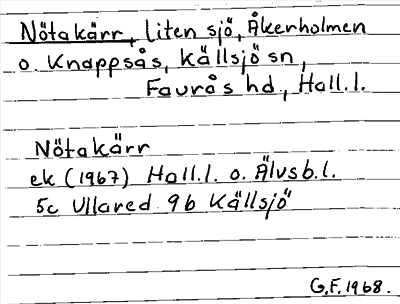 Nötakärr, liten sjö, Åkerholmen
o. Knappsås, Källsjö sn,
Faurås hd, Hall.l.
Nötakärr
ek (1967) Hall.l. o. Älvsb.l.
5c Ullared 9b Källsjö
G.F. 1968.